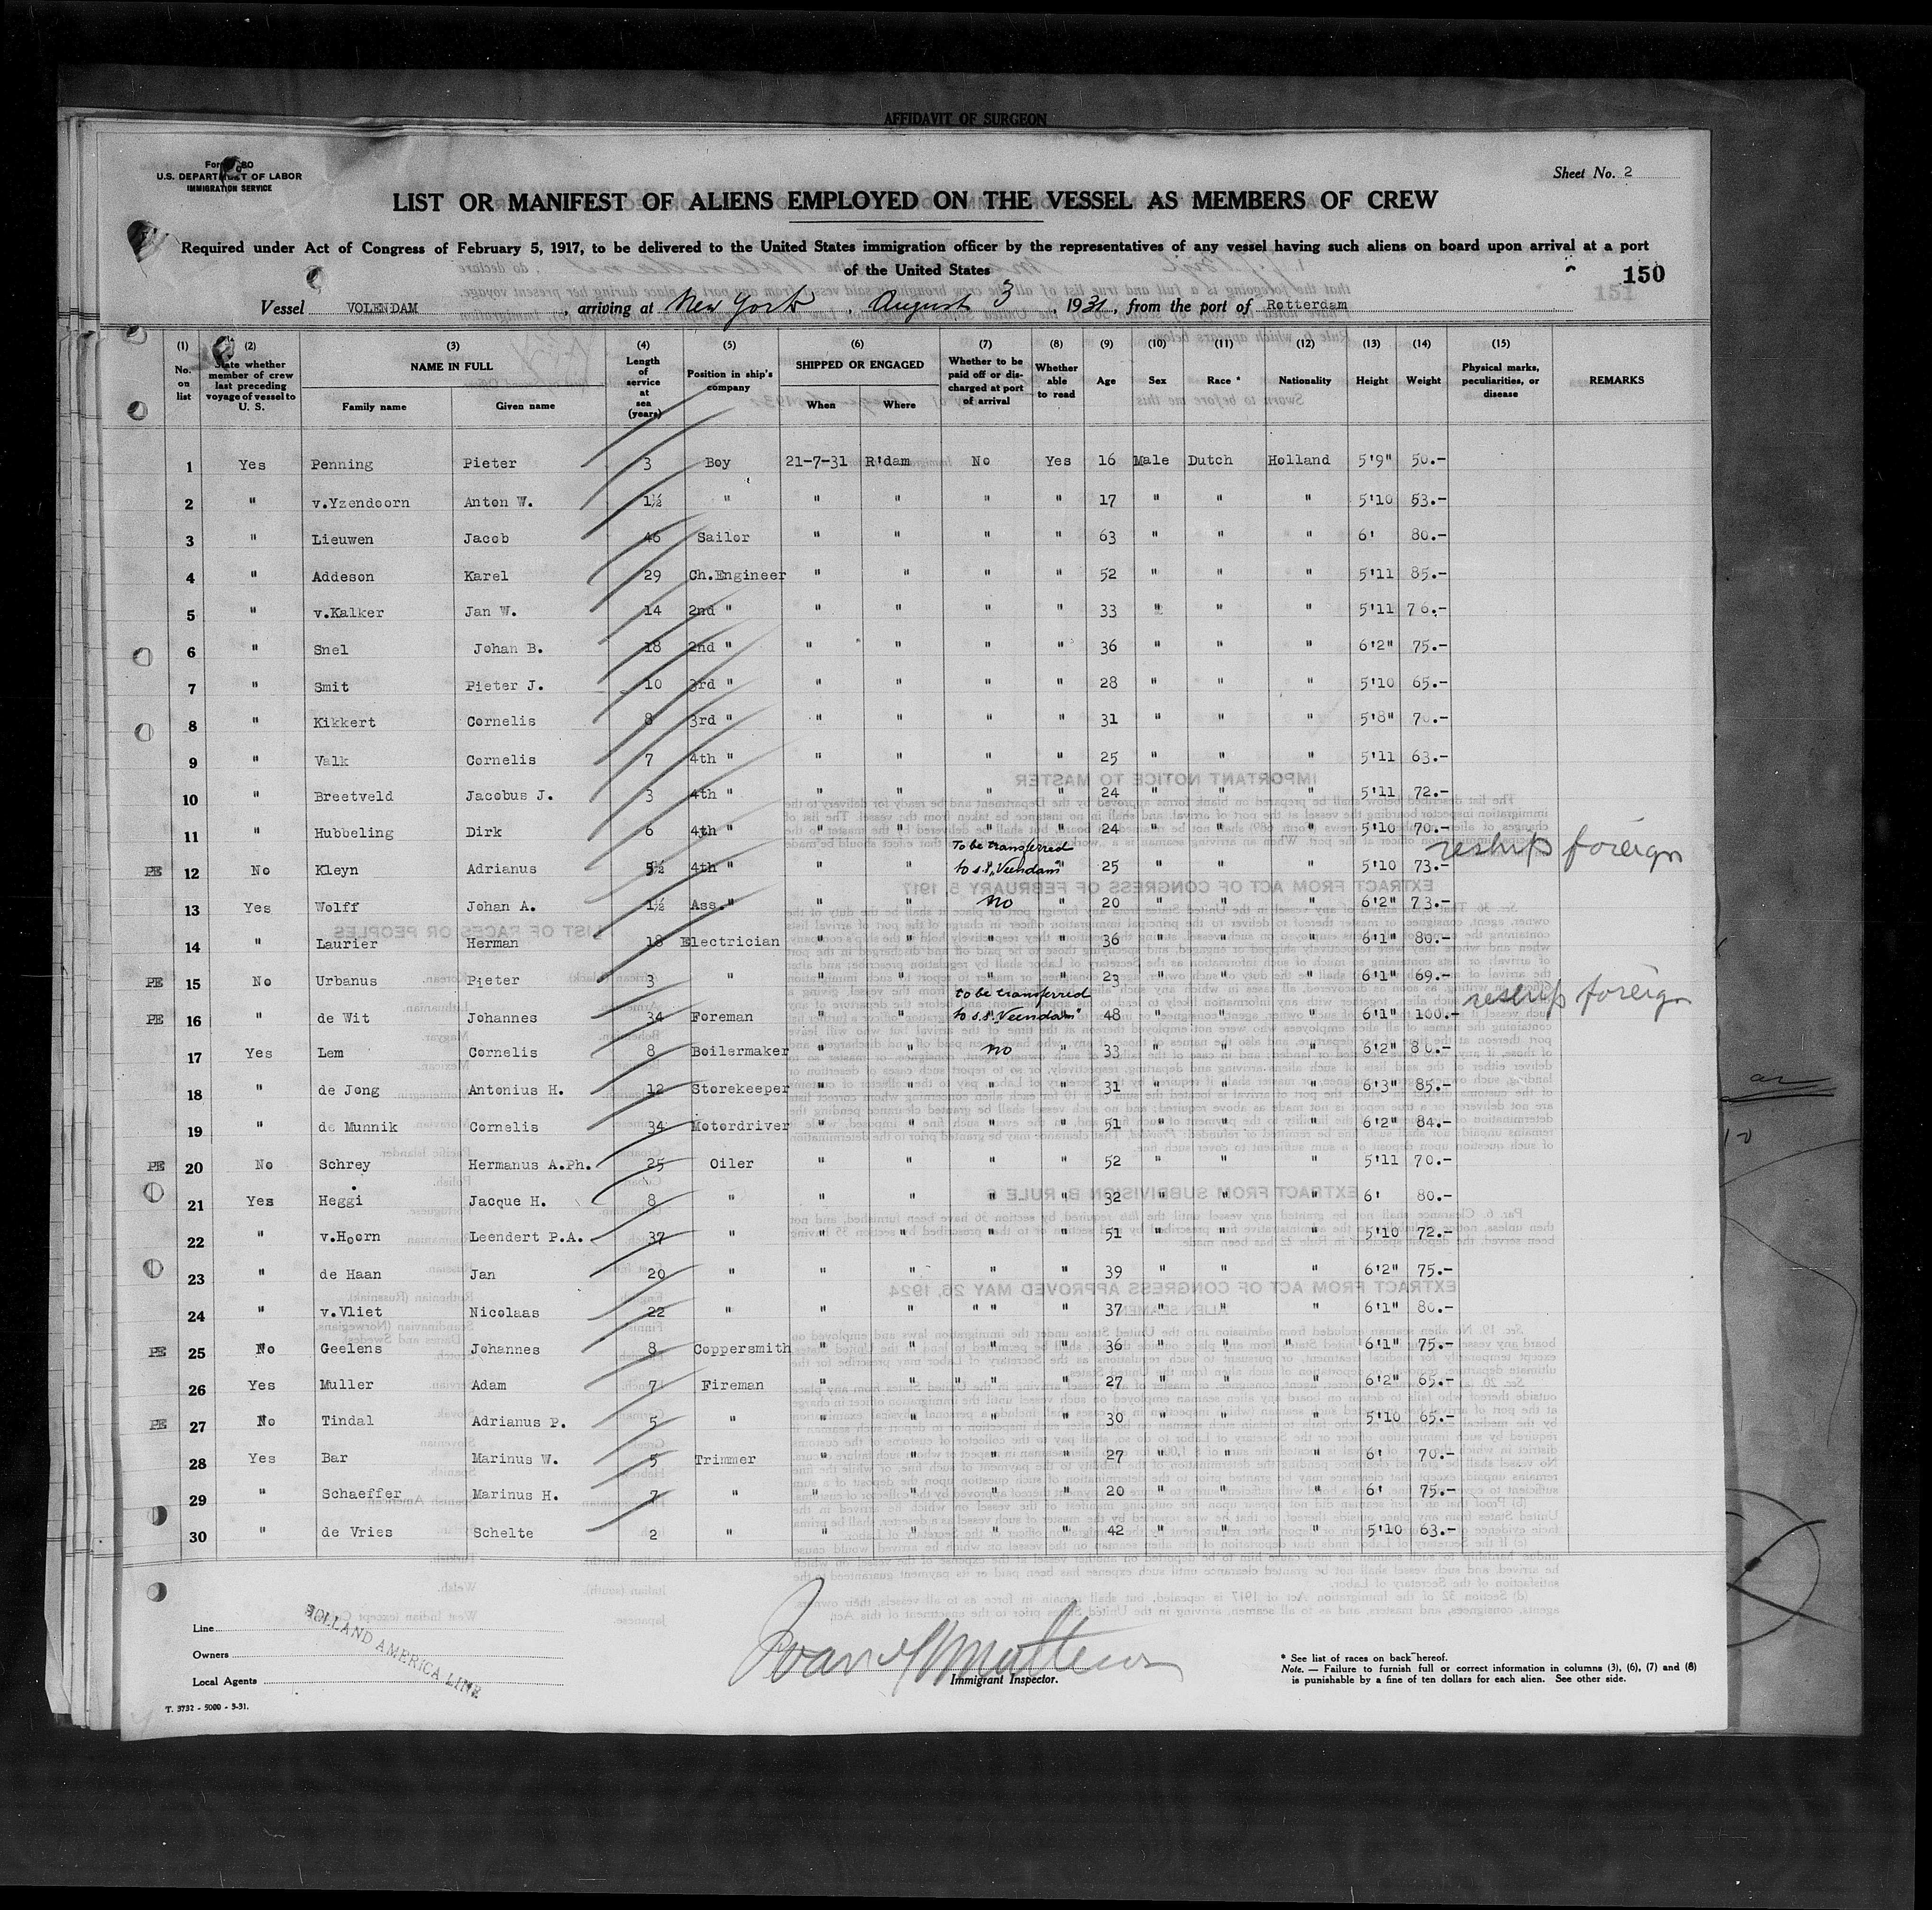 AFFIDAVIT OF SURGEON
U.S. DEPARTMENT OF LABOR
IMMIGRATION SERVICE
Sheet No. 2
LIST OR MANIFEST OF ALIENS EMPLOYED ON THE VESSEL AS MEMBERS OF CREW
Required under Act of Congress of February 5, 1917, to be delivered to the United States immigration officer by the representatives of any vessel having such aliens on board upon arrival at a port
of the United States
150
Vessel VOLENDAM, arriving at New York, August 3, 1931, from the port of Rotterdam
(1) No. on list (2) State whether member of crew last preceding voyage of vessel to U. S. (3) NAME IN FULL Family name Given name (4) Length of service at sea (years) (5) Position in ship's company (6) SHIPPED OR ENGAGED When Where (7) Whether to be paid off or discharged at port of arrival (8) Whether able to read (9) Age (10) Sex (11) Race * (12) Nationality (13) Height (14) Weight (15) Physical marks, peculiarities, or disease REMARKS
1 Yes Penning Pieter 3 Boy 21-7-31 R'dam No Yes 16 Male Dutch Holland 5'9" 50.-
2 " v.Yzendoorn Anton W. 1½ " " " " " 17 " " " 5'10 53.-
3 " Lieuwen Jacob 46 Sailor " " " " 63 " " " 6' 80.-
4 " Addeson Karel 29 Ch.Engineer " " " " 52 " " " 5'11 85.-
5 " v.Kalker Jan W. 14 2nd " " " " " 33 " " " 5'11 76.-
6 " Snel Johan B. 18 2nd " " " " " 36 " " " 6'2" 75.-
7 " Smit Pieter J. 10 3rd " " " " " 28 " " " 5'10 65.-
8 " Kikkert Cornelis 8 3rd " " " " " 31 " " " 5'8" 70.-
9 " Valk Cornelis 7 4th " " " " " 25 " " " 5'11 63.-
10 " Breetveld Jacobus J. 3 4th " " " " " 24 " " " 5'11 72.-
11 " Hubbeling Dirk 6 4th " " " " " 24 " " " 5'10 70.-
PE 12 No Kleyn Adrianus 5½ 4th " " " To be transferred to s.s. "Veendam" " 25 " " " 5'10 73.- reship foreign
13 Yes Wolff Johan A. 1½ Ass." " " no " 20 " " " 6'2" 73.-
14 " Laurier Herman 18 Electrician " " " " 36 " " " 6'1" 80.-
PE 15 No Urbanus Pieter 3 " " " " " 23 " " " 6'1" 69.-
PE 16 " de Wit Johannes 34 Foreman " " to be transferred to s.s. "Veendam" " 48 " " " 6'1" 100.- reship foreign
17 Yes Lem Cornelis 8 Boilermaker " " no " 33 " " " 6'2" 80.-
18 " de Jong Antonius H. 12 Storekeeper " " " " 31 " " " 6'3" 85.-
19 " de Munnik Cornelis 34 Motordriver " " " " 51 " " " 6'2" 84.-
PE 20 No Schrey Hermanus A.Ph. 25 Oiler " " " " 52 " " " 5'11 70.-
21 Yes Heggi Jacque H. 8 " " " " " 32 " " " 6' 80.-
22 " v.Hoorn Leendert P.A. 37 " " " " " 51 " " " 5'10 72.-
23 " de Haan Jan 20 " " " " " 39 " " " 6'2" 75.-
24 " v.Vliet Nicolaas 22 " " " " " " 37 " " " 6'1" 80.-
PE 25 No Geelens Johannes 8 Coppersmith " " " " 36 " " " 6'1" 75.-
26 Yes Muller Adam 7 Fireman " " " " " 27 " " " 6'2" 65.-
PE 27 No Tindal Adrianus P. 5 " " " " " 30 " " " 5'10 65.-
28 Yes Bar Marinus W. 5 Trimmer " " " " 27 " " " 6' 70.-
29 " Schaeffer Marinus H. 7 " " " " " 20 " " " 6' 75.-
30 " de Vries Schelte 2 " " " " " 42 " " " 5'10 63.-
Line
Owners
Local Agents
HOLLAND AMERICA LINE
Immigrant Inspector.
* See list of races on back hereof.
Note. — Failure to furnish full or correct information in columns (3), (6), (7) and (8)
is punishable by a fine of ten dollars for each alien. See other side.
T. 3732 - 5000 - 3-31.